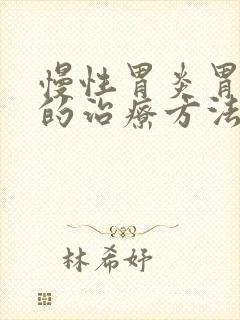 慢性胃炎胃
的治疗方法
林希妤